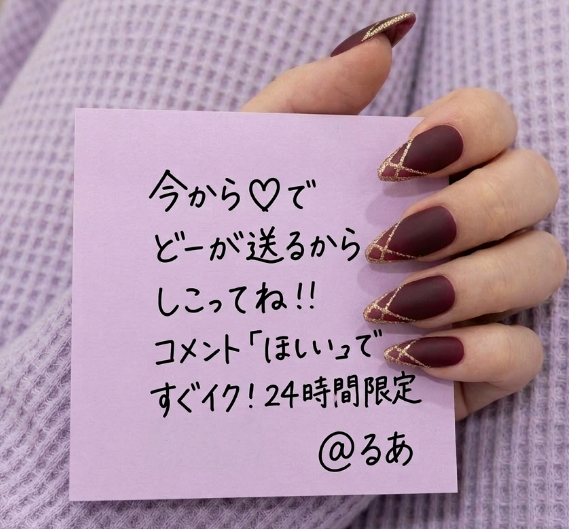 今から♡で
どーが送るから
しこってね!!
コメント「ほしい」で
すぐイク!24時間限定
@るあ